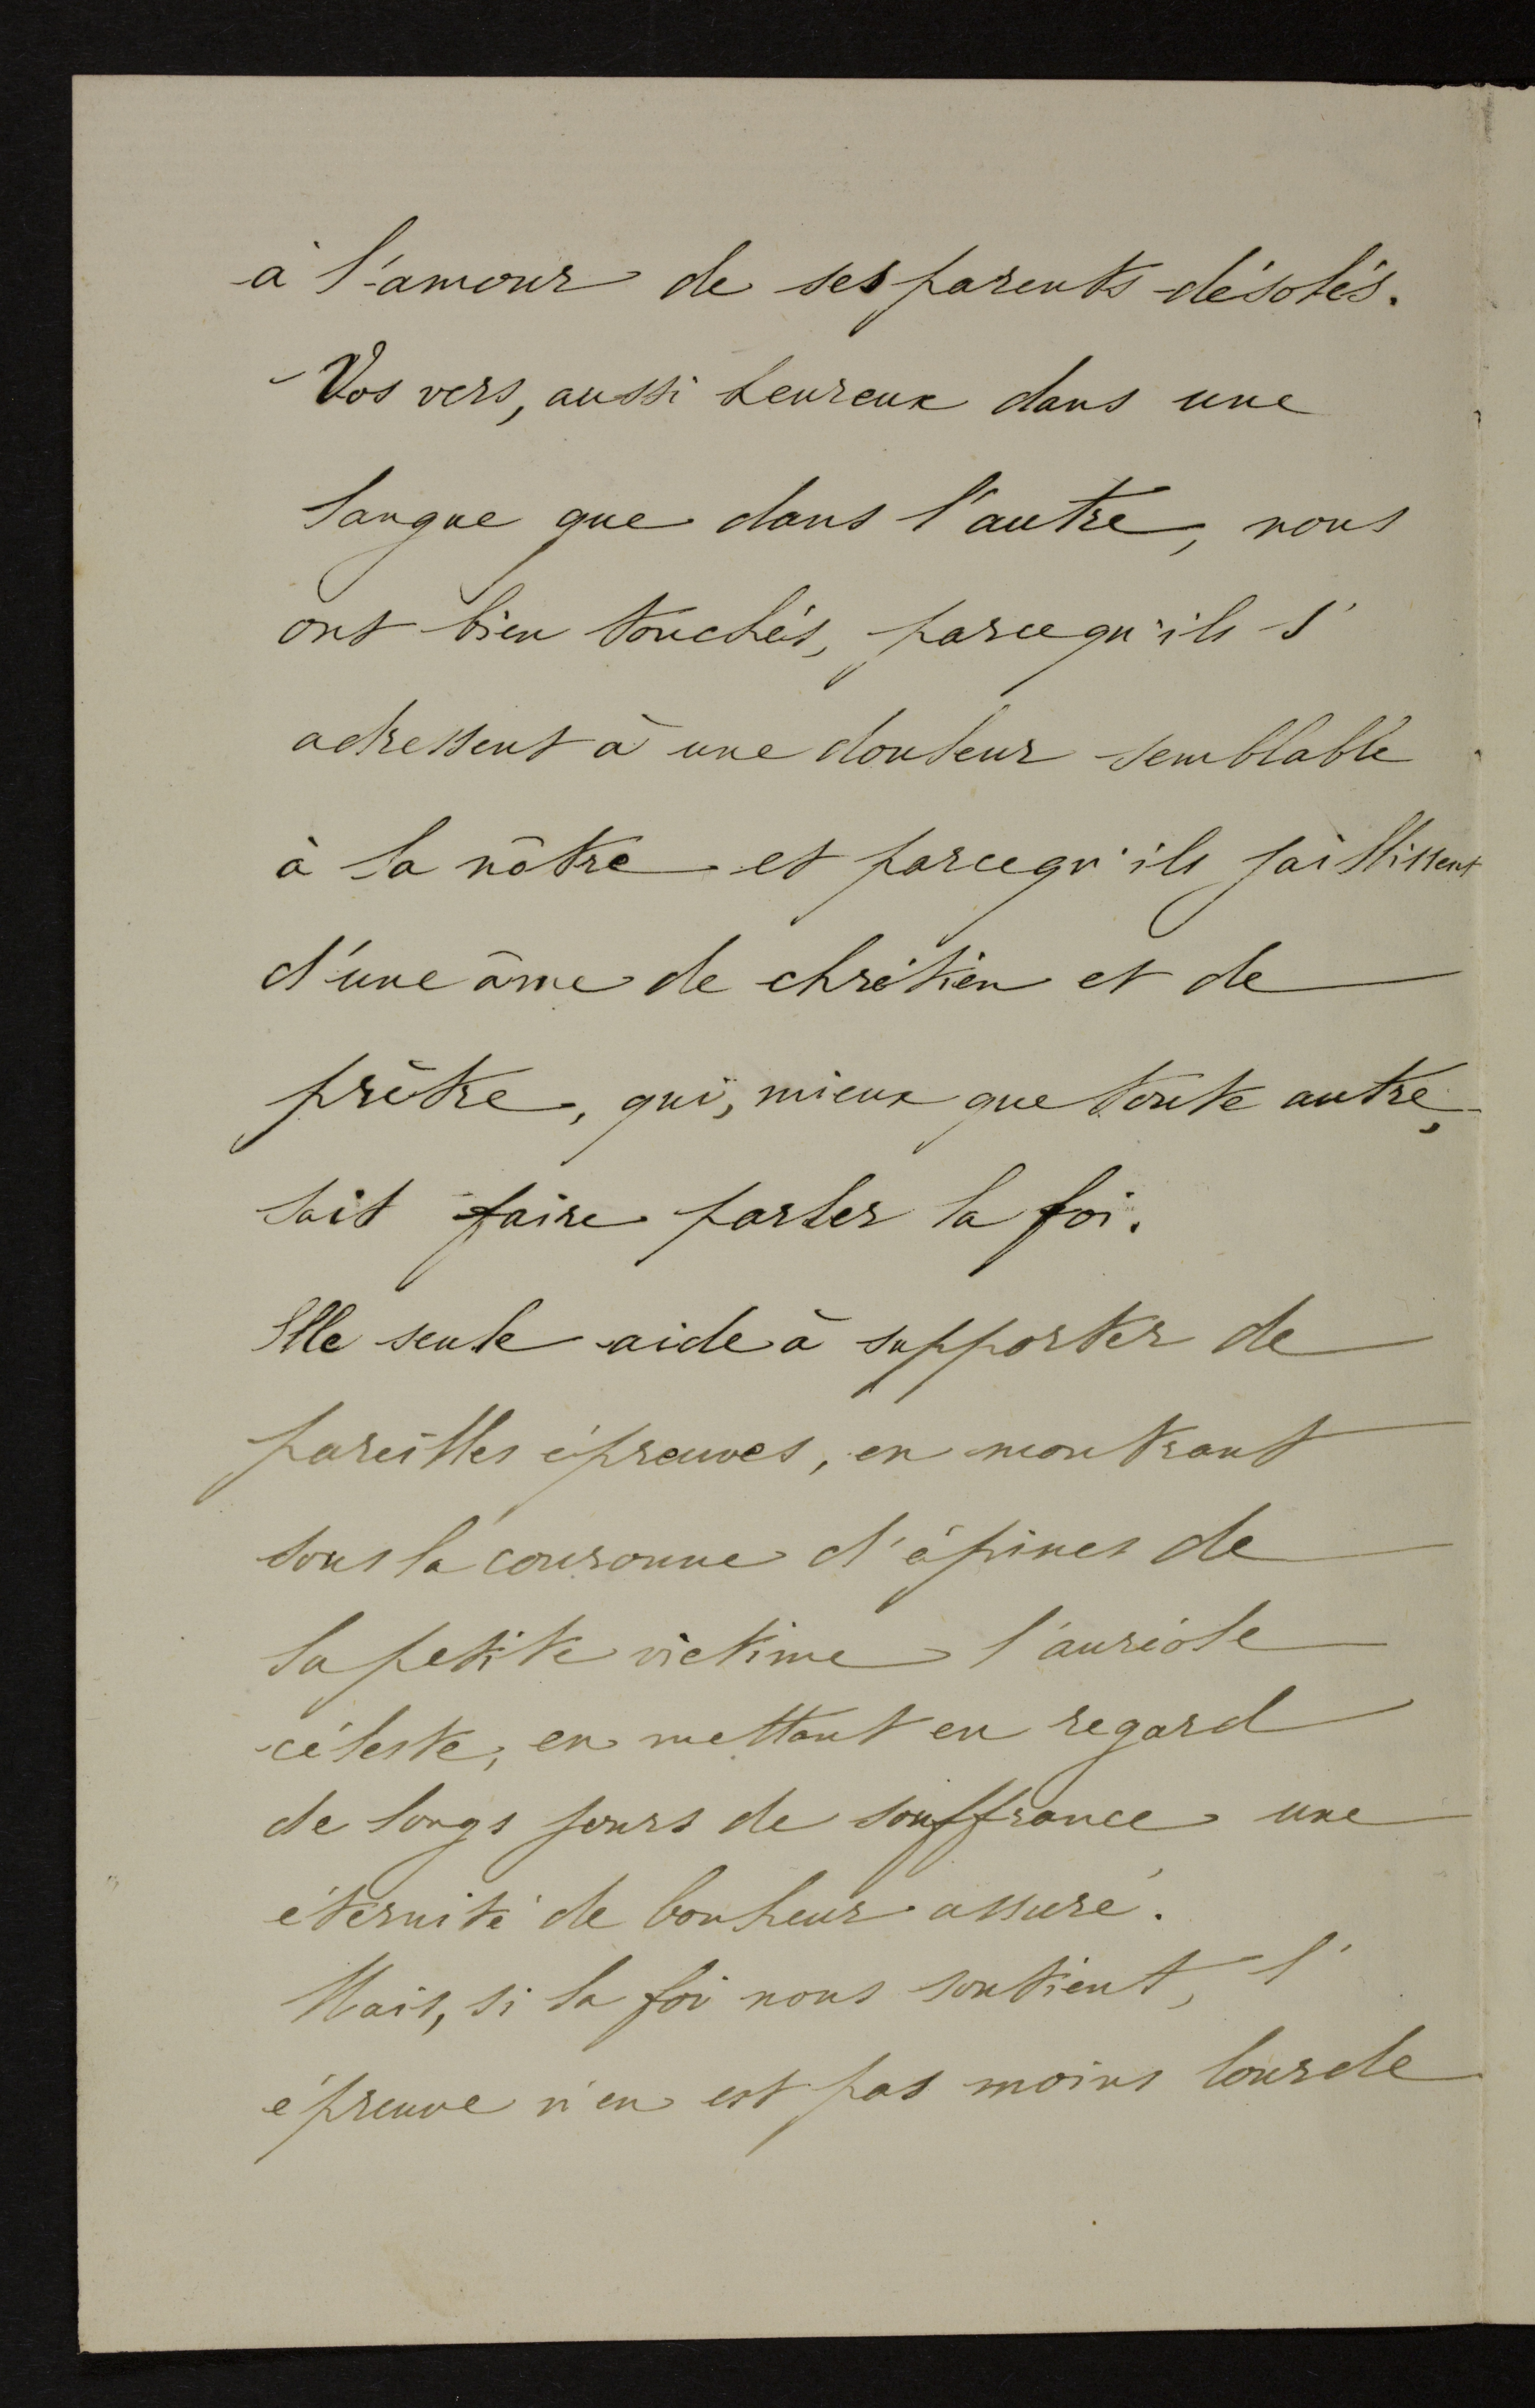 à l'amour de ses parents désolés.
Vos vers, aussi heureux dans une
langue que dans l'autre, nous
ont bien touchés, parcequ'ils s'
adressent à une douleur semblable
à la nôtre et parcequ'ils jaillissent
d'une âme de chrétien et de
prêtre, qui, mieux que toute autre,
sait faire parler la foi.
Elle seule aide à supporter de
pareilles épreuves, en montrant
sous la couronne d'épines de
la petite victime l'auréole
céleste, en mettant en regard
de longs jours de souffrance une
éternité de bonheur assuré.
Mais, si la foi nous soutient, l'
épreuve n'en est pas moins lourde